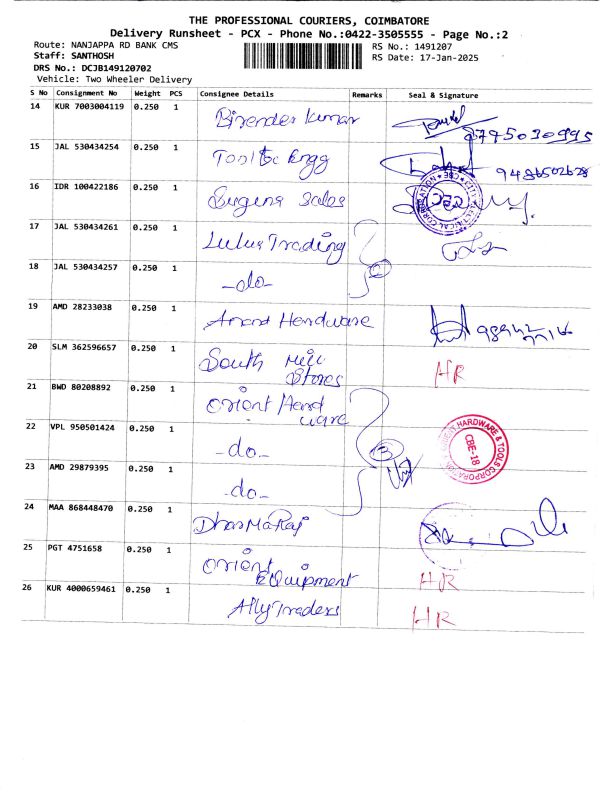 THE PROFESSIONAL COURIERS, COIMBATORE
Delivery Runsheet - PCX - Phone No.:0422-3505555 - Page No.:2
Route: NANJAPPA RD BANK CMS
RS No.: 1491207
Staff: SANTHOSH
RS Date: 17-Jan-2025
DRS No.: DCJB149120702
Vehicle: Two Wheeler Delivery
S No Consignment No Weight PCS Consignee Details Remarks Seal & Signature
14 KUR 7003004119 0.250 1 Birender Kumar 8795030995
15 JAL 530434254 0.250 1 Engg 9486502628
16 IDR 100422186 0.250 1 Eugene Sales
17 JAL 530434261 0.250 1 Lulus Trading
18 JAL 530434257 0.250 1 -do- 2
19 AMD 28233038 0.250 1 Anand Hardware
20 SLM 362596657 0.250 1 South Mill HR
Stores
21 BWD 80208892 0.250 1 Orient Hard
ware
22 VPL 950501424 0.250 1 -do- 3
HARDWARE & TOOLS CORPORATION
CBE-18
23 AMD 29879395 0.250 1 -do-
24 MAA 868448470 0.250 1 DharmaRaj
25 PGT 4751658 0.250 1 Orient HR
Equipment
26 KUR 4000659461 0.250 1 Ally Traders HR